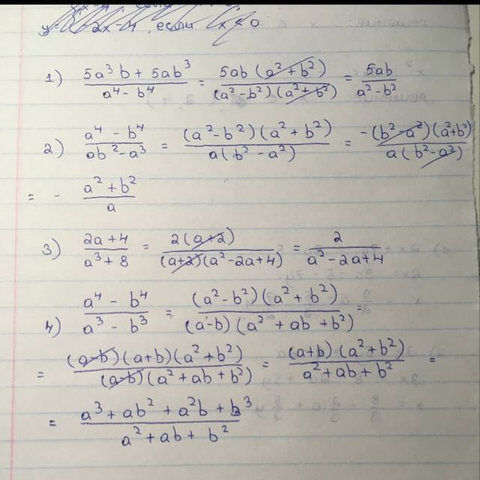 y = 2x - 4, если x < 0
1) (5a³b + 5ab³)/(a⁴ - b⁴) = (5ab (a² + b²))/((a² - b²)(a² + b²)) = 5ab/(a² - b²)
2) (a⁴ - b⁴)/(ab² - a³) = ((a² - b²)(a² + b²))/(a(b² - a²)) = (-(b² - a²)(a² + b²))/(a(b² - a²))
= - (a² + b²)/a
3) (2a + 4)/(a³ + 8) = (2(a+2))/((a+2)(a² - 2a + 4)) = 2/(a² - 2a + 4)
4) (a⁴ - b⁴)/(a³ - b³) = ((a² - b²)(a² + b²))/((a - b)(a² + ab + b²)) =
= ((a - b)(a + b)(a² + b²))/((a - b)(a² + ab + b²)) = ((a + b)(a² + b²))/(a² + ab + b²) =
= (a³ + ab² + a²b + b³)/(a² + ab + b²)